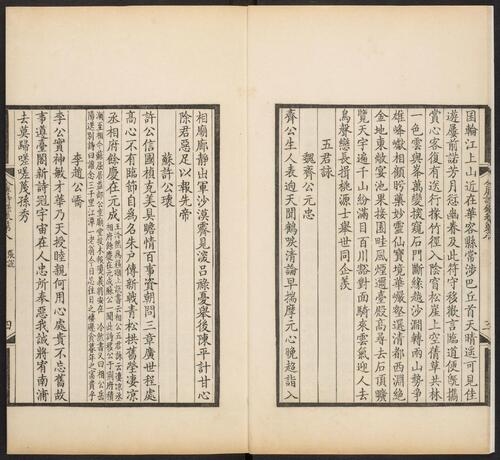 囷輪江上山近在華容縣常涉巴丘首天晴遥可見佳
遊屢前諾芳月愆幽眷及此符守移歡言臨道便既攜
賞心客復有送行掾竹徑入陰窅松崖上空蒨草共林
一色雲與峯萬變探窺石門斷緣越沙㵎轉兩山勢爭
雄峰巘相顧眄藥妙靈仙寶境華巖壑選清都西淵絶
金地東敞宴池果接園畦風煙邇臺殿高尋去石頂曠
覽天宇遍千山紛滿目百川豁對面騎來雲氣迎人去
鳥聲戀長揖桃源士舉世同企羨
五君詠
魏齊公元忠
齊公生人表迥天聞鶴唳清論早揣摩玄心晚超詣入
三
相廟廊靜出軍沙漠霽見深呂祿憂舉後陳平計甘心
除君惡足以報先帝
蘇許公瓌
許公信國楨克美具瞻情百事資朝問三章廣世程處
高心不有臨節自爲名朱戶傳新戟青松拱舊塋凄凉
丞相府餘慶在元成
李趙公嶠
李公實神敏才華乃天授睦親何用心處貴不忘舊故
事遵臺閣新詩冠宇宙在人忠所奉惡我誠將宥南浦
去莫歸嗟嗟蔑孫秀
四